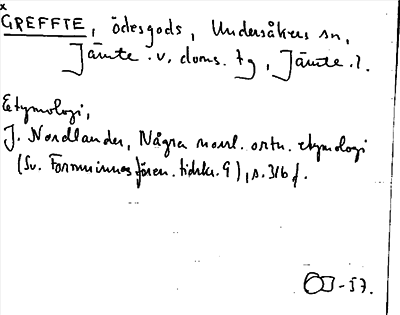 x
GREFFTE, ödesgods, Undersåkers sn,
Jämte. v. doms. tg, Jämte. l.
Etymologi,
J. Nordlander, Några norrl. ortn. etymologi
(Sv. Fornminnesfören. tidskr. 9), s. 316 f.
OJ-57.